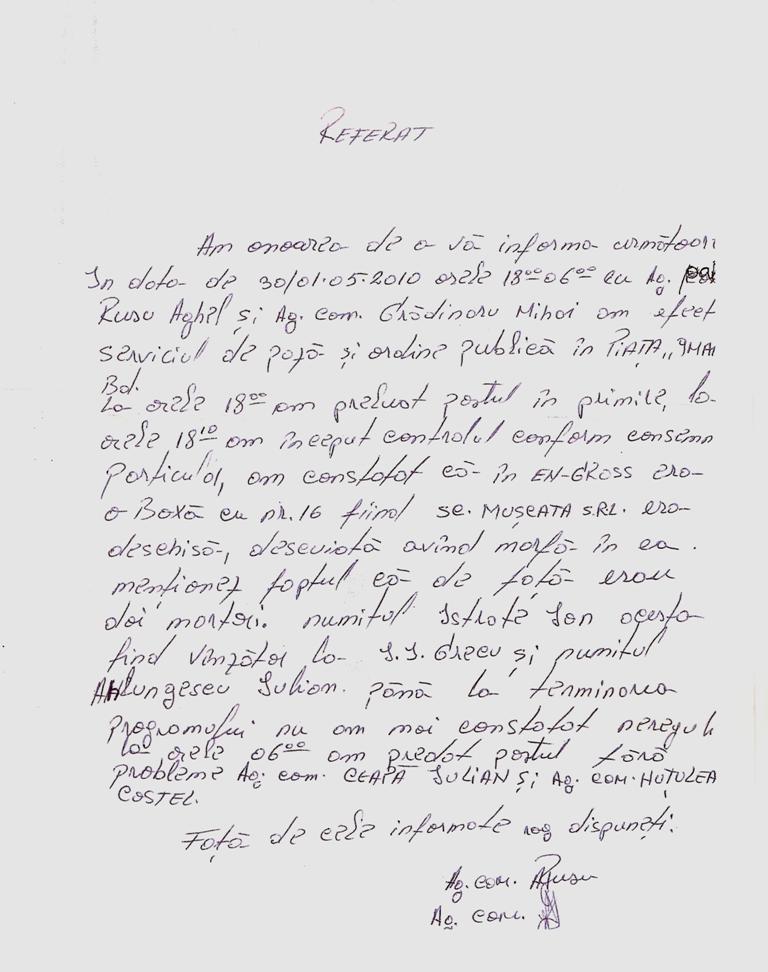 REFERAT
Am onoarea de a vă informa următoar
În data de 30/01.05.2010 orele 18⁰⁰ 06⁰⁰ cu Ag.
Rusu Aghel și Ag. com. Grădinaru Mihai am efect
serviciul de pază și ordine publică în PIAȚA „9 MAI
Bd.
La orele 18⁰⁰ am preluat postul în primire, la
orele 18¹⁰ am început controlul conform consemn
Particular, am constatat că în EN-GROSS era
o Boxă cu nr. 16 fiind sc. MUȘCATA S.R.L. era
deschisă, descuiată avînd marfă în ea.
menționez faptul că de față erau
doi martori. numitul Istrate Ion acesta
find vînzător la I.I. Grecu și numitul
Alungescu Iulian. până la terminarea
programului nu am mai constatat neregul
la orele 06⁰⁰ am predat postul fără
probleme Ag. com. CEAPĂ IULIAN și Ag. COM. HUȚULEA
COSTEL.
Față de cele informate rog dispuneți.
Ag. com. Rusu
Ag. com.